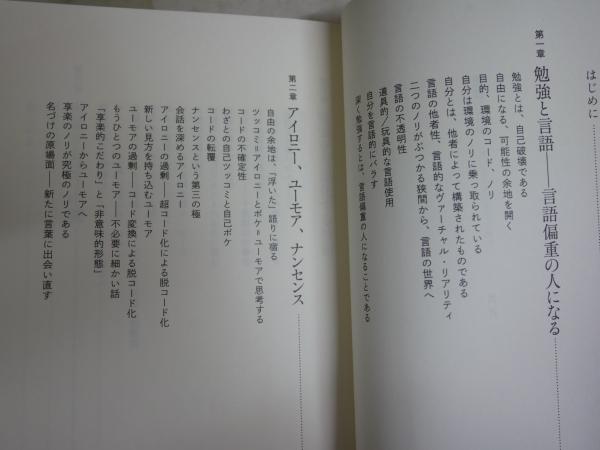 はじめに
第一章 勉強と言語——言語偏重の人になる
勉強とは、自己破壊である
自由になる、可能性の余地を開く
目的、環境のコード、ノリ
自分は環境のノリに乗っ取られている
自分とは、他者によって構築されたものである
言語の他者性、言語的なヴァーチャル・リアリティ
二つのノリがぶつかる狭間から、言語の世界へ
言語の不透明性
道具的／玩具的な言語使用
自分を言語的にバラす
深く勉強するとは、言語偏重の人になることである
第二章 アイロニー、ユーモア、ナンセンス
自由の余地は、「浮いた」語りに宿る
ツッコミ=アイロニーとボケ=ユーモアで思考する
コードの不確定性
わざとの自己ツッコミと自己ボケ
コードの転覆
ナンセンスという第三の極
会話を深めるアイロニー
アイロニーの過剰——超コード化による脱コード化
新しい見方を持ち込むユーモア
ユーモアの過剰——コード変換による脱コード化
もうひとつのユーモア——不必要に細かい話
「享楽的こだわり」と「非意味的形態」
アイロニーからユーモアへ
享楽のノリが究極のノリである
名づけの原場面——新たに言葉に出会い直す